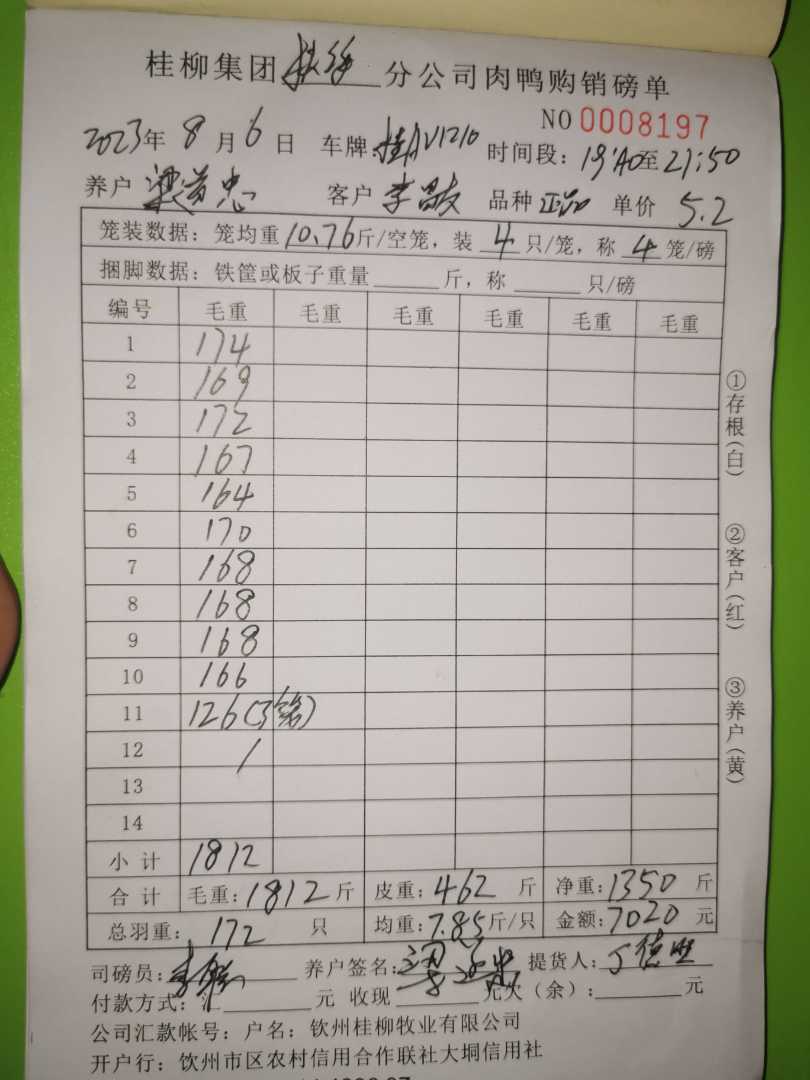 桂柳集团 分公司肉鸭购销磅单
NO 0008197
2023年 8 月 6 日 车牌：桂AV1210 时间段：19:40至21:50
养户 梁道忠 客户 李 品种 正品 单价 5.2
笼装数据：笼均重10.76斤/空笼，装 4 只/笼，称 4 笼/磅
捆脚数据：铁筐或板子重量 斤，称 只/磅
编号 毛重 毛重 毛重 毛重 毛重 毛重
1 174
2 169
3 172
4 167
5 164
6 170
7 168
8 168
9 168
10 166
11 126(3笼)
12 /
13
14
小 计 1812
合 计 毛重：1812 斤 皮重：462 斤 净重：1350 斤
总羽重： 172 只 均重：7.85斤/只 金额：7020 元
司磅员： 养户签名：梁道忠 提货人：
付款方式：汇 元 收现 元欠（余）： 元
公司汇款帐号：户名：钦州桂柳牧业有限公司
开户行：钦州市区农村信用合作联社大垌信用社
①存根（白）
②客户（红）
③养户（黄）